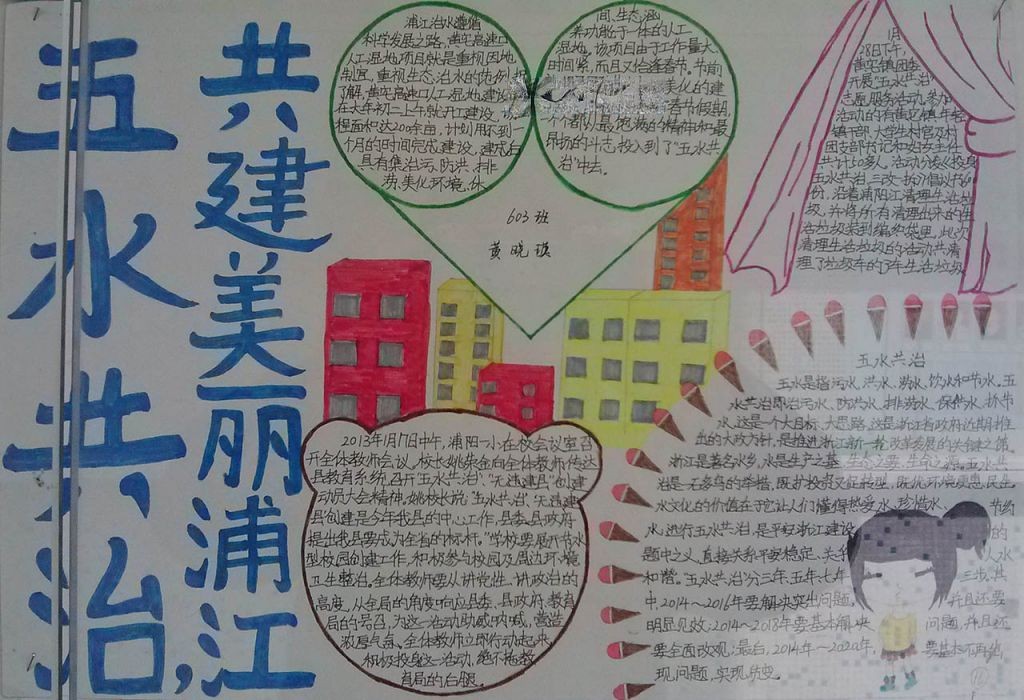 五水共治,
共建美丽浦江
浦江治水遵循
科学发展之路,黄宅高速口
人工湿地项目就是重视因地
制宜,重视生态治水的范例。据
了解,黄宅高速口人工湿地建设
在大年初三上午就开工建设,
程面积达200余亩,计划用不到一
个月的时间完成建设,建成后
具有集治污、防洪、排
涝、美化环境、休
间、生态涵
养功能于一体的人工
湿地。该项目由于工作量大
时间紧,而且又恰逢春节。节前
美化的建
春节假期,
个个都以最饱满的精神和最
昂扬的斗志,投入到了“五水共
治”中去。
603班
黄晓琪
1月
28日下午,
黄宅镇团委
开展“五水共治”
志愿服务活动,参加
活动的有黄宅镇年轻
镇干部、大学生村官及村
团支部书记和妇女主任
共计60多人。活动分发《投身
五水共治、三改一拆》倡议书60
份,沿着浦阳江清理生活垃
圾,并将所有清理出来的生
活垃圾装到编织袋里,此次
清理生活垃圾的活动共清
理了垃圾车的了车生活垃圾
五水共治
五水是指污水、洪水、涝水、饮水和节水。五
水共治即治污水、防洪水、排涝水、保供水、抓节
水。这是一个大目标、大思路,这是浙江省政府近期推
出的大政方针,是推进浙江新一轮改革发展的关键之策。
浙江是著名水乡,水是生产之基、生命之要、生态之源。五水共
治是一石多鸟的举措,既扩投资又促转型,既优环境更惠民生。
水文化的价值在于它让人们懂得热爱水、珍惜水、节约
水,进行五水共治,是平安浙江建设的
题中之义,直接关系平安稳定、关系人水
和谐。五水共治分三年、五年、七年三步,其
中2014~2016年要解决突出问题,并且还要
明显见效;2014~2018年要基本解决问题,并且还
要全面改观;最后,2014年~2020年,要基本不再出
现问题,实现质变。
2013年1月17日中午,浦阳一小在校会议室召
开全体教师会议。校长姚朱金向全体教师传达
县教育系统召开“五水共治”、“无违建县”创建
动员大会精神,姚校长说:“五水共治”、无违建
县创建是今年我县的中心工作,县委、县政府
提出我县要成为全省的标杆。”学校要展开节水
型校园创建工作,积极参与校园及周边环境
卫生整治。全体教师要从讲党性、讲政治的
高度,从全局的角度响应县委、县政府、教育
局的号召,为这一活动助威呐喊,营造
浓厚气氛。全体教师立即行动起来,
积极投身这一活动,绝不拖教
育局的后腿。